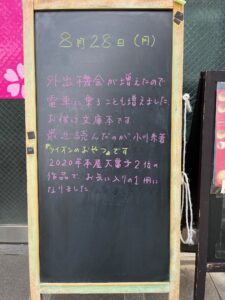 8月28日(月)
外出機会が増えたので
電車に乗ることも増えました
お供は文庫本です
最近読んだのが小川糸著
『ライオンのおやつ』です
2020年本屋大賞予2位の
作品で お気に入りの1冊に
なりました